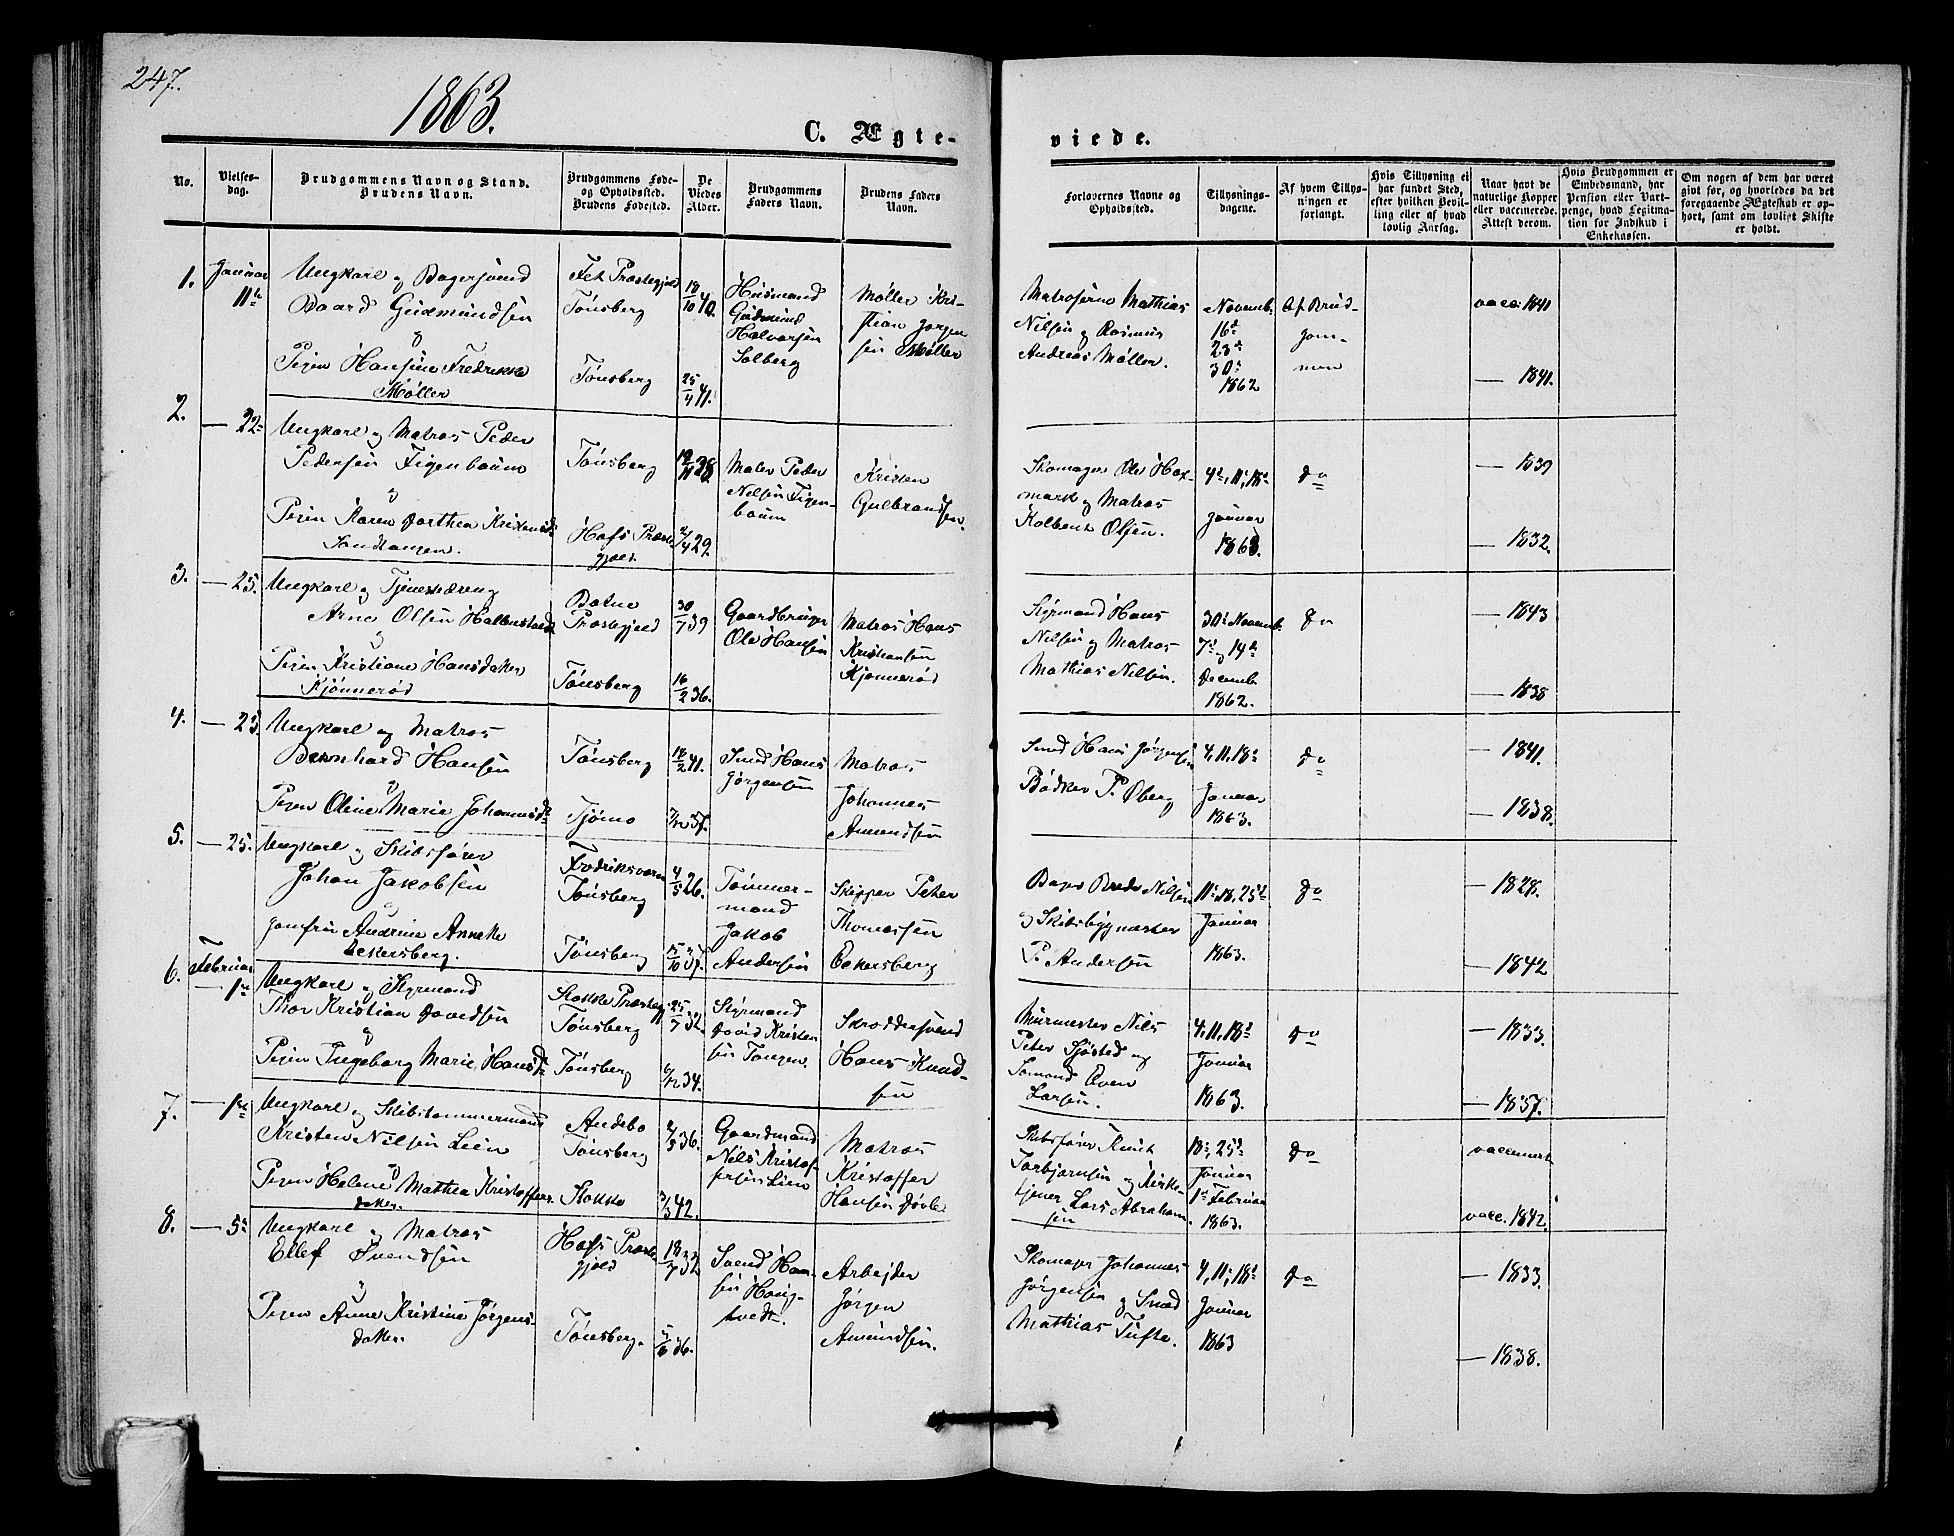 247.
1863.
C. Ægte-
viede.
No.
Vielses-
dag.
Brudgommens Navn og Stand.
Brudens Navn.
Brudgommens Føde-
og Opholdssted.
Brudens Fødested.
De
Viedes
Alder.
Brudgommens
Faders Navn.
Brudens Faders
Navn.
Forlovernes Navne og
Opholdssted.
Tillysnings-
dagene.
Af hvem Tillys-
ningen er
forlangt.
Hvis Tillysning ei
har fundet Sted,
efter hvilken Bevil-
ling eller af hvad
lovlig Aarsag.
Naar havt de
naturlige Kopper
eller vaccinerede.
Attest derom.
Hvis Brudgommen er
Embedsmand, har
Pension eller Vart-
penge, hvad Legitima-
tion for Indskud i
Enkekassen.
Om nogen af dem har været
givt før, og hvorledes da det
foregaaende Ægteskab er op-
hørt, samt om lovligt Skifte
er holdt.
1.
Januar
11te
Ungkarl og Bagersvend
Baard Gudmundsen
og
Pigen Hansine Fredrikke
Møller
Fet Præstegjeld
Tønsberg
Tønsberg
18/10 40.
25/4 41.
Husmand
Gudmund
Halvorsen
Solberg
Møller Kri-
stian Jørgen-
sen Møller
Matroserne Mathias
Nilsen og Rasmus
Andreas Møller.
Novemb.
16d
23d
30d
1862
Af Brud-
gom-
men
vacc. 1841
— 1841.
2.
— 22d
Ungkarl og Matros Peder
Pedersen Figenbaum
og
Pigen Karen Dorthea Kristensd.
Sandtangen.
Tønsberg
Hofs Præste-
gjeld.
38.
2/4 29.
Maler Peder
Nilsen Figen-
baum
Kristen
Gulbrandsen.
Skomager Ole Hax-
mark og Matros
Kolbent Olsen.
4d, 11, 18d
Januar
1863.
do
— 1839
— 1832.
3.
— 25.
Ungkarl og Tjenestedreng
Arne Olsen Hallenstvedt
og
Pigen Kristiane Hansdatter
Kjønnerød
Botne
Præstegjeld
Tønsberg
30/7 39
16/2 36.
Gaardbruger
Ole Hansen
Matros Hans
Kristiansen
Kjønnerød
Styrmand Hans
Nilsen og Matros
Mathias Nilsen.
30d Novemb.
7d og 14d
Decemb.
1862.
do
— 1843
— 1838
4.
— 23.
Ungkarl og Matros
Bernhard Hansen
og
Pigen Oline Marie Johannesd.
Tønsberg
Tjømø
18/2 41.
7/12 37.
Smed Hans
Jørgensen
Matros
Johannes
Amundsen
Smed Hans Jørgensen
Bødker P. Øberg
4, 11, 18d
Januar
1863.
do
— 1841.
— 1838.
5.
— 25.
Ungkarl og Skibsfører
Johan Jakobsen
og
Jomfru Andrine Annette
Eckersberg.
Fredriksværn
Tønsberg
Tønsberg
4/5 26.
15/10 37.
Tømmer-
mand
Jakob
Andersen
Skipper Peter
Thomassen
Eckersberg
Bager Brede Nilsen
og Skibsbygmester
P. Andersen
11, 18, 25d
Januar
1863.
do
— 1828.
— 1842
6.
Februar
— 1ste
Ungkarl og Styrmand
Thor Kristian Davidsen
og
Pigen Ingeborg Marie Hansd.
Stokke Præsteg.
Tønsberg
Tønsberg
25/7 32.
6/12 34.
Styrmand
David Kristen-
sen Tangen.
Skreddersvend
Hans Knud-
sen
Murmester Nils
Peter Sjøsted og
Sømand Even
Larsen.
4, 11, 18d
Januar
1863.
do
— 1833.
— 1857.
7.
— 1ste
Ungkarl og Skibstømmermand
Kristen Nilsen Lien
og
Pigen Helene Mathea Kristoffers-
datter.
Andebo
Tønsberg
Stokke
2/3 36.
3/3 42.
Gaardmand
Nils Kristof-
fersen Lien
Matros
Kristoffer
Hansen Døvle
Skibsfører Knut
Torbjørnsen og Kirke-
tjener Lars Abraham-
sen
18, 25d
Januar
1ste Februar
1863.
do
vaccinert
vacc. 1842.
8.
— 5te
Ungkarl og Matros
Ellef Svendsen
og
Pigen Anne Kristine Jørgens-
datter.
Hofs Præste-
gjeld
Tønsberg.
18/7 32.
5/6 36.
Svend Han-
sen Haug-
tvedt.
Arbejder
Jørgen
Amundsen.
Skomager Johannes
Jørgensen og Smed
Mathias Tufte.
4, 11, 18d
Januar
1863
do
— 1833.
— 1838.